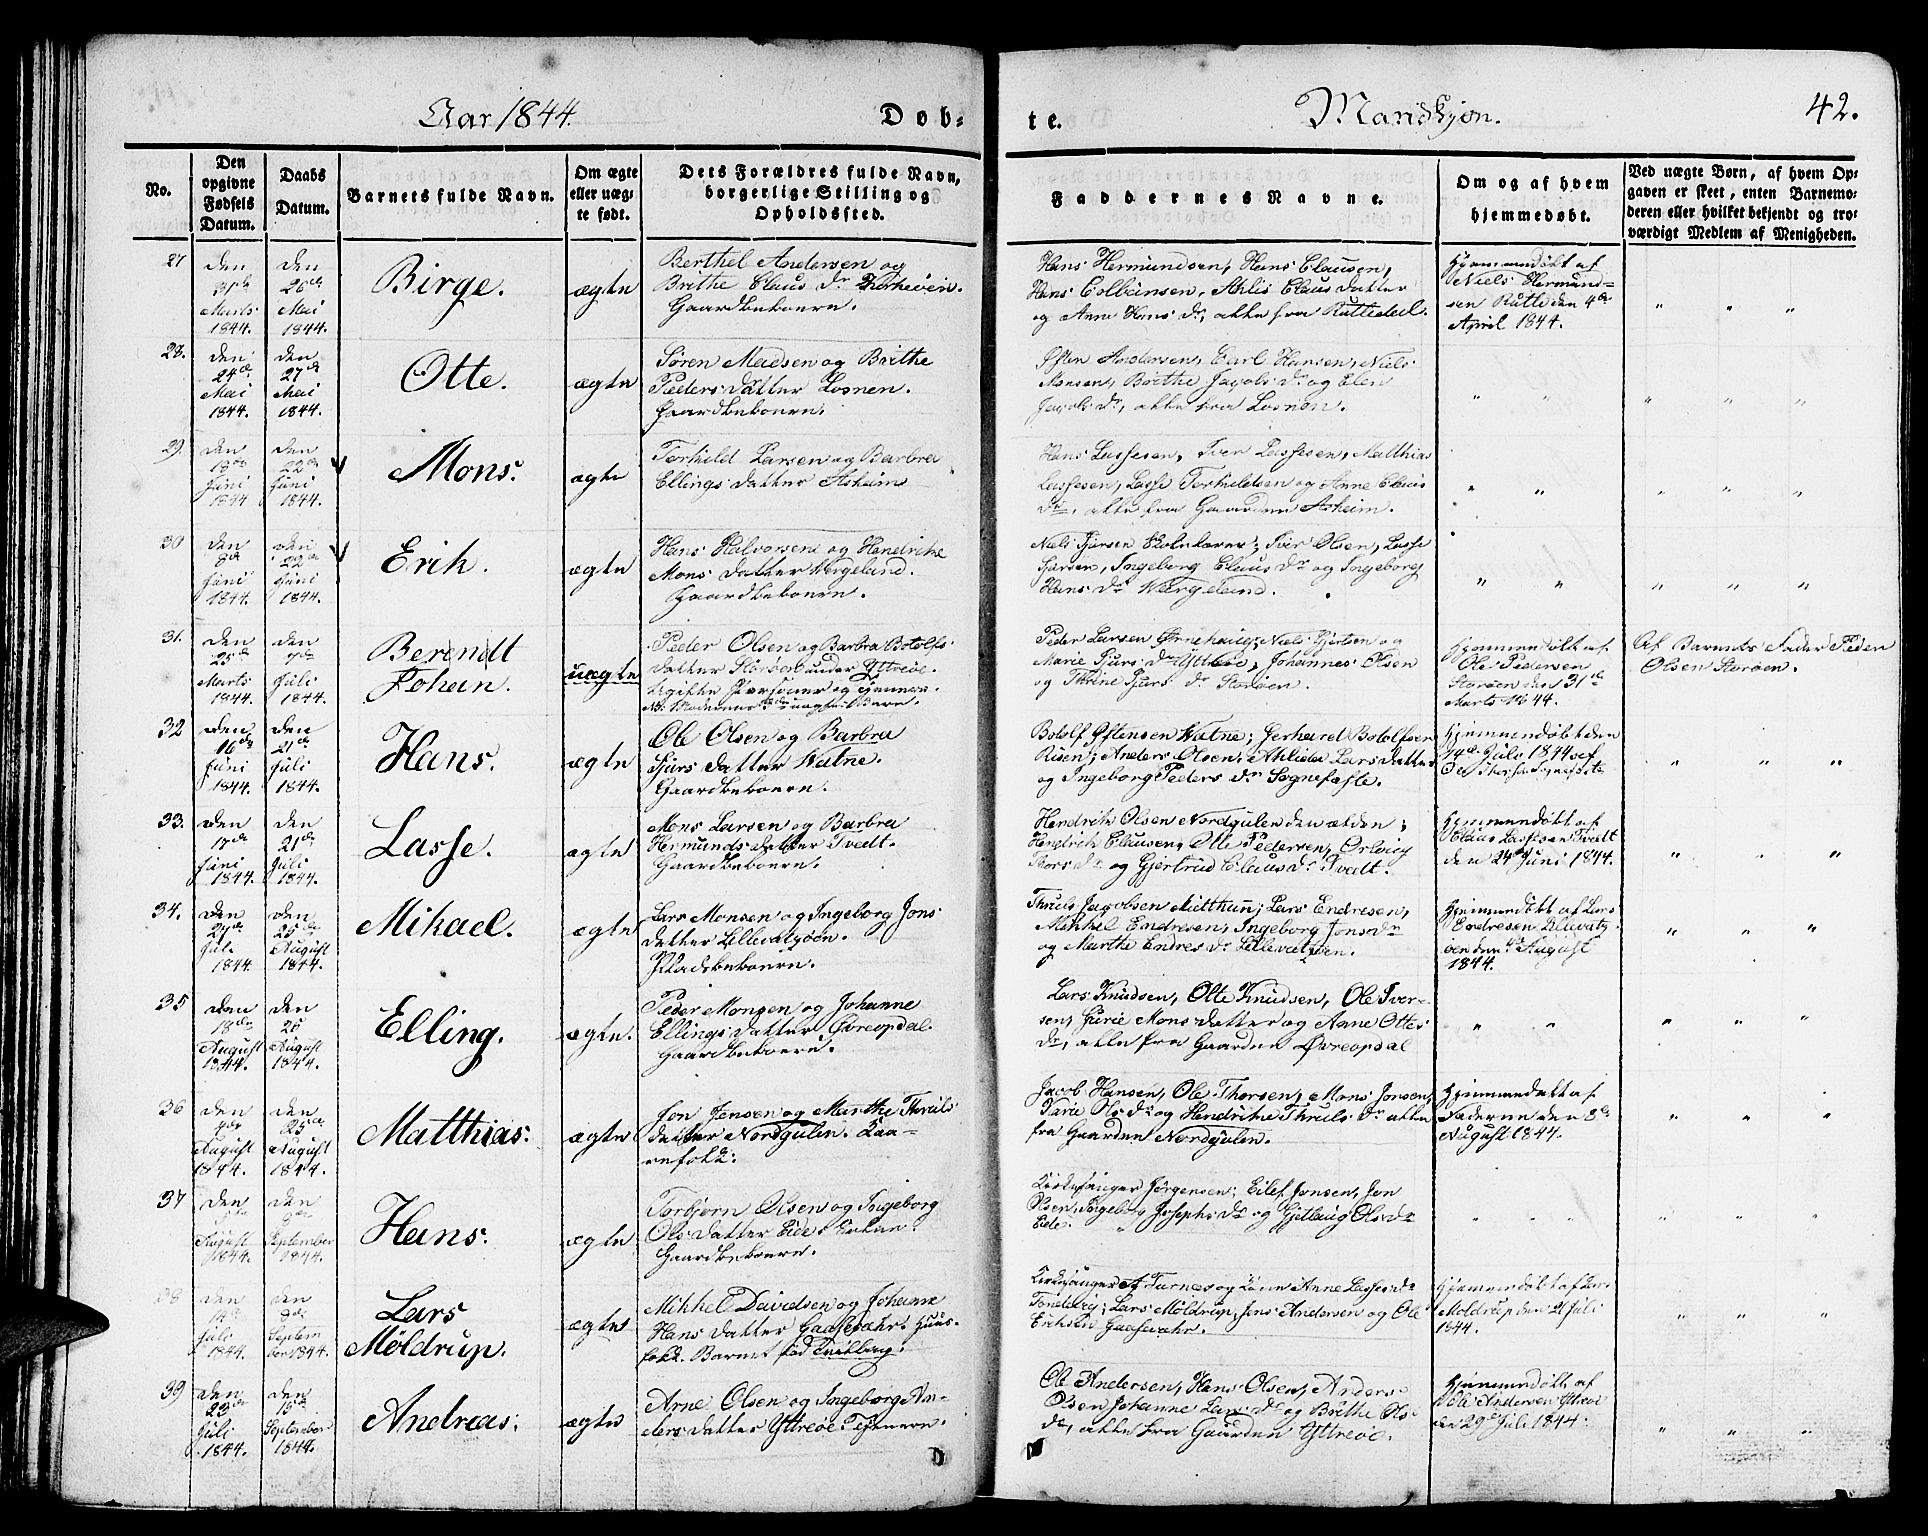 Aar 1844.
Døb-
te.
Mandkjøn.
42.
No.
Den opgivne Fødsels Datum.
Daabs Datum.
Barnets fulde Navn.
Om ægte eller uægte født.
Dets Forældres fulde Navn, borgerlige Stilling og Opholdssted.
Faddernes Navne.
Om og af hvem hjemmedøbt.
Ved uægte Børn, af hvem Op-
gaven er skeet, enten Barnemo-
deren eller hvilket bekjendt og tro-
værdigt Medlem af Menigheden.
27
den 31te Marts 1844.
den 26de Mai 1844.
Birge.
ægte
Berthel Andersen og
Brithe Claus Dr
Gaardbeboere.
Hans Hermundsen, Hans Clausen,
Hans Colbensen, Ahlis Claus Datter
og Anne Hans Dr, alle fra Rutledal.
Hjemmedøbt af
Niels Hermund-
sen Rutle den 4de
April 1844.
" " "
28.
den 24de Mai 1844.
den 27de Mai 1844.
Otte.
ægte
Søren Madsen og Brithe
Peders Datter Losnen.
Gaardbeboere.
Østen Andersen, Carl Hansen, Niels
Monsen, Brithe Jacobs Dr og Elen
Jacobs Dr, alle fra Losnen.
" " " " "
29.
den 18de Juni 1844
den 22de Juni 1844.
Mons.
ægte
Torkild Larsen og Barbra
Ellings Datter Asheim
Hans Lassesen, Iver Lassesen, Matthias
Lassesen, Lasse Torkildsen og Anne Claus
Dr, alle fra Gaarden Asheim.
" " " " "
30
den 8de Juni 1844.
den 22de Juni 1844.
Erik.
ægte
Hans Halvorsen og Hendrikke
Mons Datter Wergeland.
Gaardbeboere.
Niels Sjursen Skolelærer, Iver Olsen, Lasse
Sjursen, Ingeborg Claus Dr og Ingeborg
Hans Dr Wergeland.
" " " " "
31.
den 25de Marts 1844.
den 7de Juli 1844.
Berendt
Johan.
uægte
Peder Olsen og Barbra Botolfs
Datter Storøen under Yttreøe.
Ugifte Personer og
Peder Larsen Ørnehaug, Niels Sjursen og
Marie Sjurs Dr Yttreøe, Johannes Olsen
og Thrine Sjurs Dr Storøen.
Hjemmedøbt af
Ole Pedersen
Storøen den 31te
Marts 1844.
Af Barnets Fader Peder
Olsen Storøen.
32
den 16de Juni 1844.
den 21de Juli 1844.
Hans.
ægte
Ole Olsen og Barbra
Sjurs Datter Watne.
Gaardbeboere.
Botolf Østensen Watne; Gerhard Botolfsen
Risen; Anders Olsen, Ahlida Lars Datter
og Ingeborg Peders Dr Sognefæste.
Hjemmedøbt den
Juli 1844 af
" " "
33.
den 17de Juni 1844.
den 21de Juli 1844.
Lasse.
ægte
Mons Larsen og Barbra
Hermunds Datter Tvedt.
Gaardbeboere.
Hendrik Olsen Nordgulen den ælder;
Hendrik Clausen, Otte Pedersen,
Thors Dr og Gjertrud Claus Dr Tvedt.
Hjemmedøbt af
Claus Lassesen Tvedt
den 24de Juni 1844.
" " "
34.
den 27de Juli 1844.
den 25de August 1844.
Mikael.
ægte
Lars Monsen og Ingeborg Jons
Datter Lillevatsøen.
Pladsbeboere.
Thruls Jacobsen Mitthun; Lars Endresen,
Mikkel Endresen, Ingeborg Jons Dr
og Marthe Endres Dr Lillevatsøen.
Hjemmedøbt af Lars
Endresen Lillevats-
øen den 4de August
1844.
" " "
35
den 18de August 1844.
den 25 August 1844.
Elling.
ægte.
Peder Monsen og Johanne
Ellings Datter Øvreopdal.
Gaardbeboere.
Lars Knudsen, Otte Knudsen, Ole Iver-
sen, Jurie Mons Datter og Anne Ottes
Dr, alle fra Gaarden Øvreopdal
" " " " "
36
den August 1844.
den 25de August 1844.
Matthias.
ægte
Jon Jensen og Marthe Thruls
Datter Nordgulen. Kaa-
refolk.
Jacob Hansen, Ole Thorsen, Mons Jonsen,
Parie Ols Dr og Hendrikke Thruls Dr alle
fra Gaarden Nordgulen.
Hjemmedøbt af
Faderen den 8de
August 1844.
" " "
37
den August 1844.
den 8de September 1844.
Hans.
ægte
Torbjørn Olsen og Ingeborg
Ols Datter Eide.
Gaardbeboere.
Kirkesanger Jørgensen; Eilef Jonsen, Jon
Olsen, Ingeborg Josephs Dr og Gjetlaug Ols Dr
Eide.
" " " " "
38
den Juli 1844.
den 8de September 1844.
Lars
Møldrup.
ægte
Mikkel Davidsen og Johanne
Hans Datter Gaasevær. Huus-
folk. Barnet fød
Kirkesanger Turnes og Kone Anne Lasses Dr
Lars Møldrup, Jens Andersen og Ole
Eriksen Gaasevær.
Hjemmedøbt af Lars
Møldrup den 21 Juli
1844.
" " "
39
den 23de Juli 1844.
den 15de September 1844.
Andreas.
ægte
Arne Olsen og Ingeborg An-
ders Datter Yttreøe
Ole Andersen, Hans Olsen, Anders
Olsen, Johanne Lars Dr og Brithe Ols
Dr, alle fra Gaarden Yttreøe.
Hjemmedøbt af
Ole Andersen Yttreøe
den 29de Juli 1844.
" " "